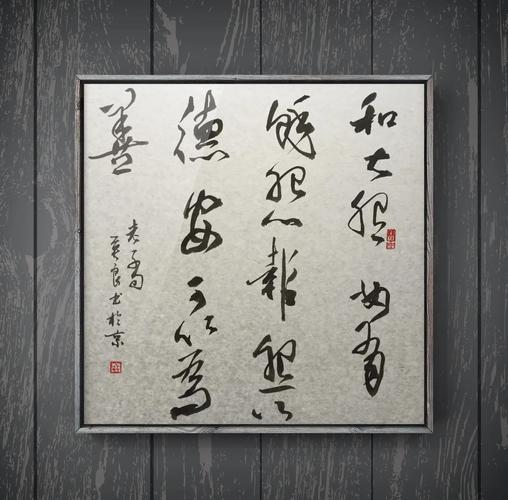 和大怨必有
餘怨報怨以
德安可以為
善
老子句
良书於京